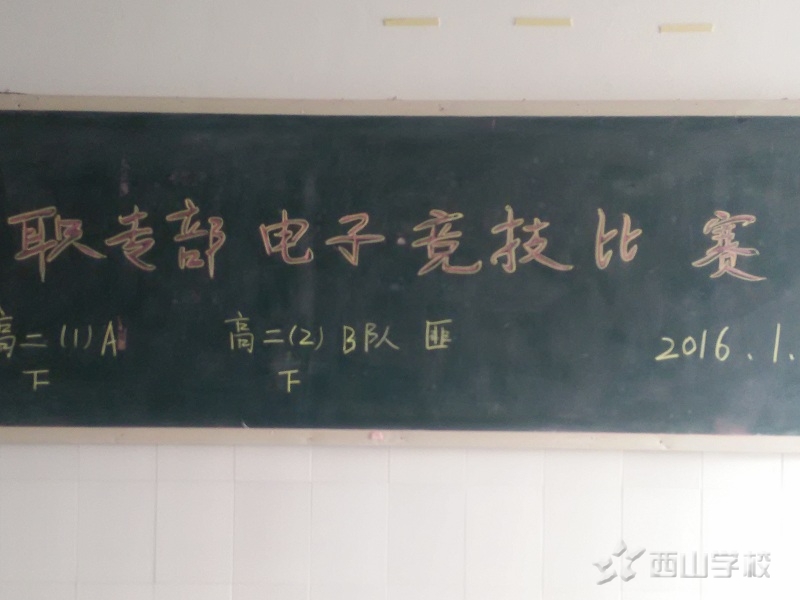 职专部电子竞技比赛
高二(1)A
高二(2) B队 匪
2016.1.
下
下
西山学校